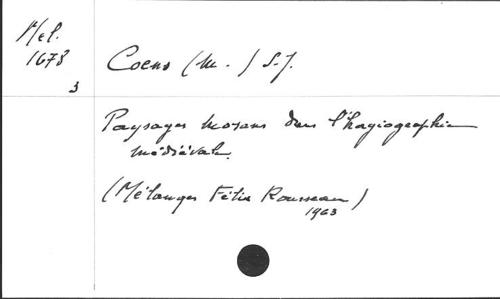 Mél.
1678
3
Coens (M.) S.J.
Paysages mosans dans l'hagiographie
médiévale.
(Mélanges Félix Rousseau)
1963